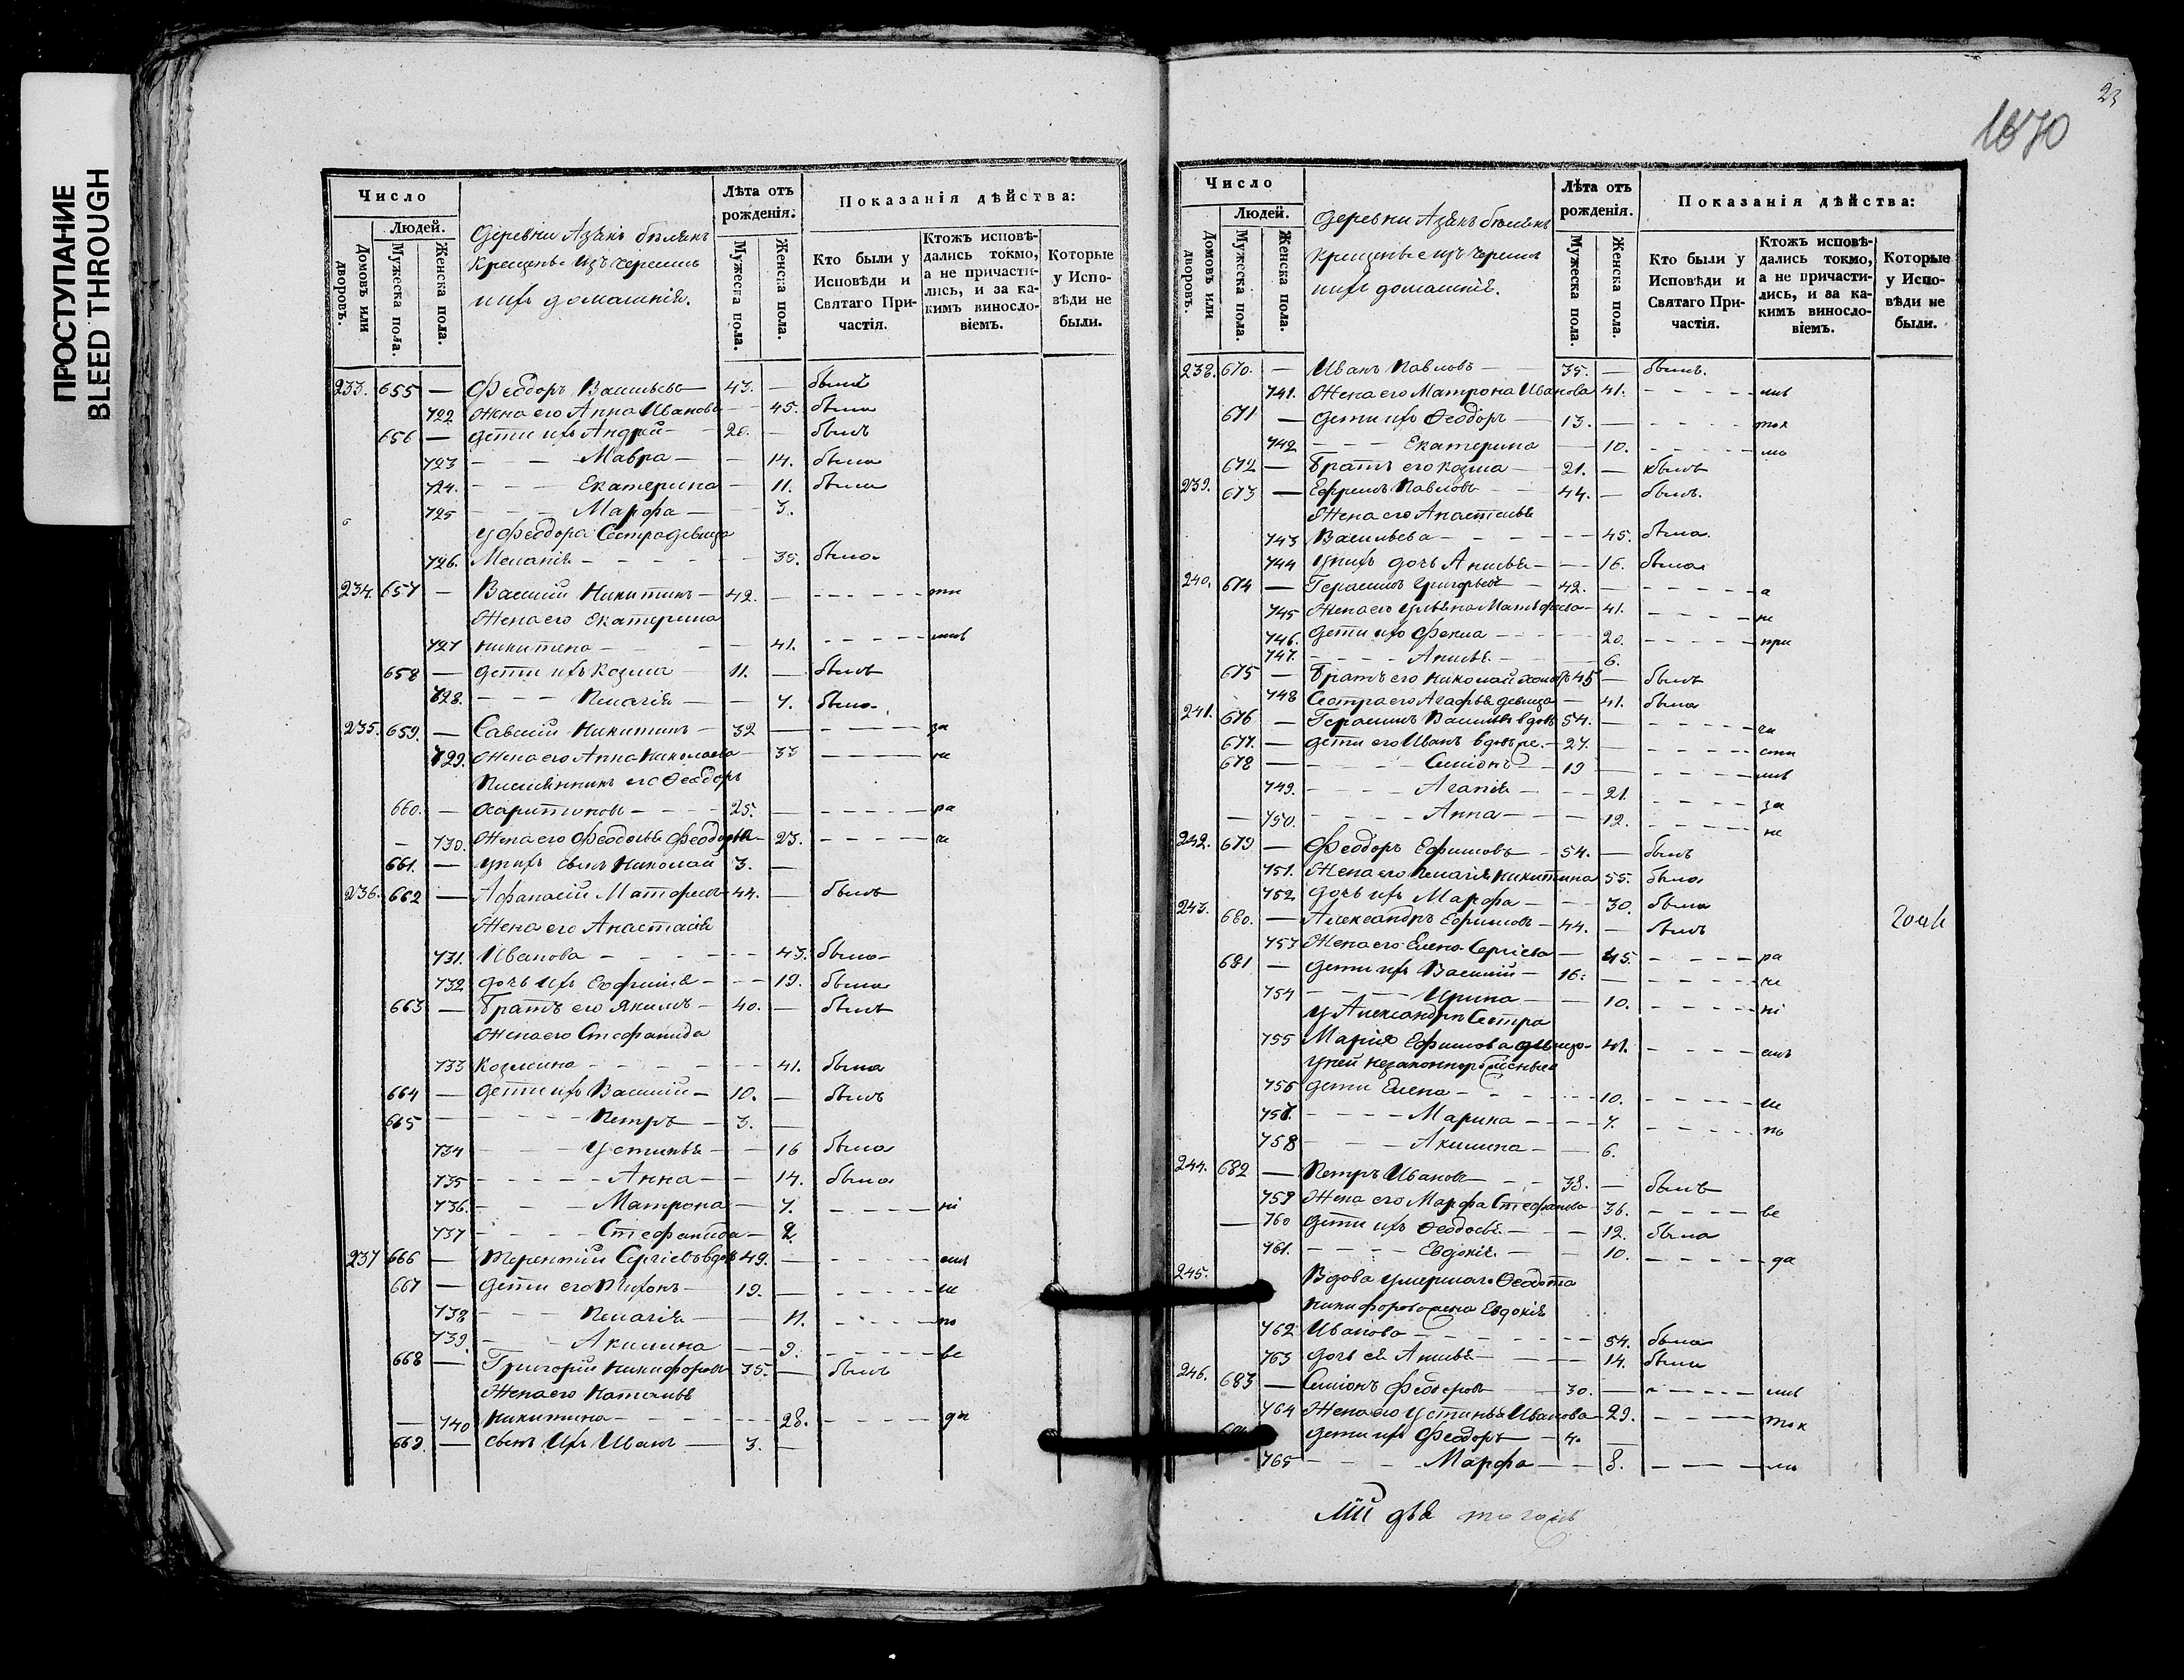 ПРОСТУПАНИЕ
BLEED THROUGH
Число
Людей.
Домовъ или дворовъ.
Мужеска пола.
Женска пола.
Деревни Азякъ
крещеные изъ черемисъ
ихъ домашнія.
Лѣта отъ рожденія.
Мужеска пола.
Женска пола.
Показанія дѣйства:
Кто были у Исповѣди и Святаго Причастія.
Ктожъ исповѣдались токмо, а не причастились, и за какимъ винословіемъ.
Которые у Исповѣди не были.
233. 655 — Феодоръ Васильевъ — 43. — былъ
722 Жена его Анна Иванова — 45. была
656 — Дети ихъ Андрей — 20. — былъ
723 — Мавра — 14. была
724. — Екатерина — 11. была
725 — Марфа — 3.
у Феодора Сестра девица
726. Меланія — 35. была
234. 657 — Василій Никитинъ — 42. —
Жена его Екатерина
727 Никитина — 41.
658 — Дети ихъ Козма — 11. — былъ
728. — Пелагія — 7. была
235. 659. — Савелій Никитинъ — 32 — за
729. Жена его Анна Николаева — 33 — не
Племянникъ его Феодоръ
660. — Харитоновъ — 25. — ра
730. Жена его Феодосья Феодорова — 23. — че
661. — у нихъ сынъ Николай 3. —
236. 662 — Афанасій Матфеевъ — 44. — былъ
Жена его Анастасія
731. Иванова — 43. была
732 дочь ихъ Евфимія — 19. была
663 — Братъ его Якимъ — 40. — былъ
Жена его Стефанида
733 Козмина — 41. была
664 — Дети ихъ Василій — 10. — былъ
665 — Петръ — 3. —
734 — Устинья — 16 была
735 — Анна — 14. была
736. — Матрона — 7. — ні
737 — Стефанида — 2.
237 666 — Терентій Сергіевъ вдовъ 49. — емъ
667 — Дети его Тихонъ — 19. — не
738 — Пелагія — 11. — по
739. — Акилина — 9. — ве
668 — Григорій Никифоровъ 35. — былъ
Жена его Наталья
740 Никитина — 28. — де
669. — сынъ ихъ Иванъ — 3. —
23
1670
Число
Людей.
Домовъ или дворовъ.
Мужеска пола.
Женска пола.
Деревни Азякъ
крещеные изъ черемисъ
ихъ домашнія.
Лѣта отъ рожденія.
Мужеска пола.
Женска пола.
Показанія дѣйства:
Кто были у Исповѣди и Святаго Причастія.
Ктожъ исповѣдались токмо, а не причастились, и за какимъ винословіемъ.
Которые у Исповѣди не были.
238. 670. — Иванъ Павловъ — 35. — былъ.
741. Жена его Матрона Иванова 41.
671 — Дети ихъ Феодоръ — 13. — ток
742 — Екатерина — 10. — мо
672 — Братъ его Козма — 21. — былъ
239. 673 — Ефремъ Павловъ — 44. — былъ.
Жена его Анастасья
743 Васильева — 45. была.
744 у нихъ дочь Анисья — 16. была
240. 674 — Герасимъ Григорьевъ — 42. — а
745 Жена его Ульяна Матфеева — 41. — не
746. Дети ихъ Фекла — 20. — при
747. — Анисья — 6.
675 — Братъ его Николай 45 — былъ
748 Сестра его Агафья девица — 41. была
241. 676 — Герасимъ Васильевъ вдовъ 54. — ча
677. — Дети его Иванъ — 27. — сти
678 — Симіонъ — 19
749. — Агапія — 21. — за
750. — Анна — 12. — не
242. 679 — Феодоръ Ефимовъ — 54. — былъ
751. Жена его Пелагія Никитина 55. была
752 дочь ихъ Марфа — 30. была
243. 680. — Александръ Ефимовъ — 44. — былъ
753 Жена его Елена Сергіева — 45. — ра
681 — Дети ихъ Василій — 16. — че
754 — Ирина — 10. — ні
У Александра Сестра
755 Марія Ефимова девица — 41. — емъ
у ней незаконнорожденные
756 Дети Елена — 10. — не
757. — Марина — 7. — по
758 — Акилина — 6.
244. 682 — Петръ Ивановъ — 38. — былъ
759 Жена его Марфа Стефанова 36. — ве
760 Дети ихъ Феодосья — 12. была
761. — Евдокія — 10. — да
245. Вдова умершаго Феодота
Никифорова жена Евдокія
762 Иванова — 54. была
763 дочь ея Анисья — 14. была
246. 683 — Симіонъ Феодоровъ — 30. —
764 Жена его Устинья Иванова — 29. — ток
Дети ихъ Феодоръ — 4. —
765 — Марфа — 8. — мо